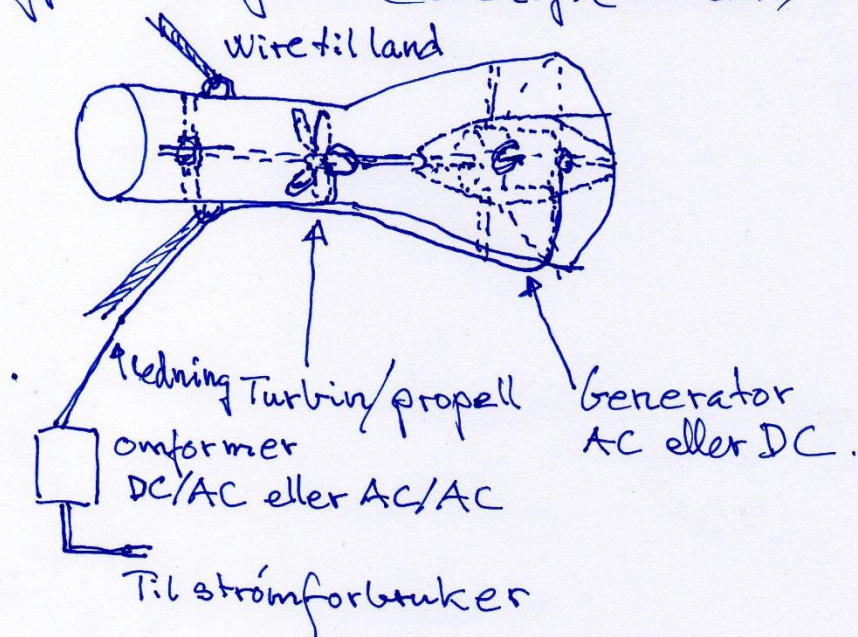 wire til land
G
ledning
Turbin/propell
Generator
AC eller DC.
omformer
DC/AC eller AC/AC
Til strömforbruker